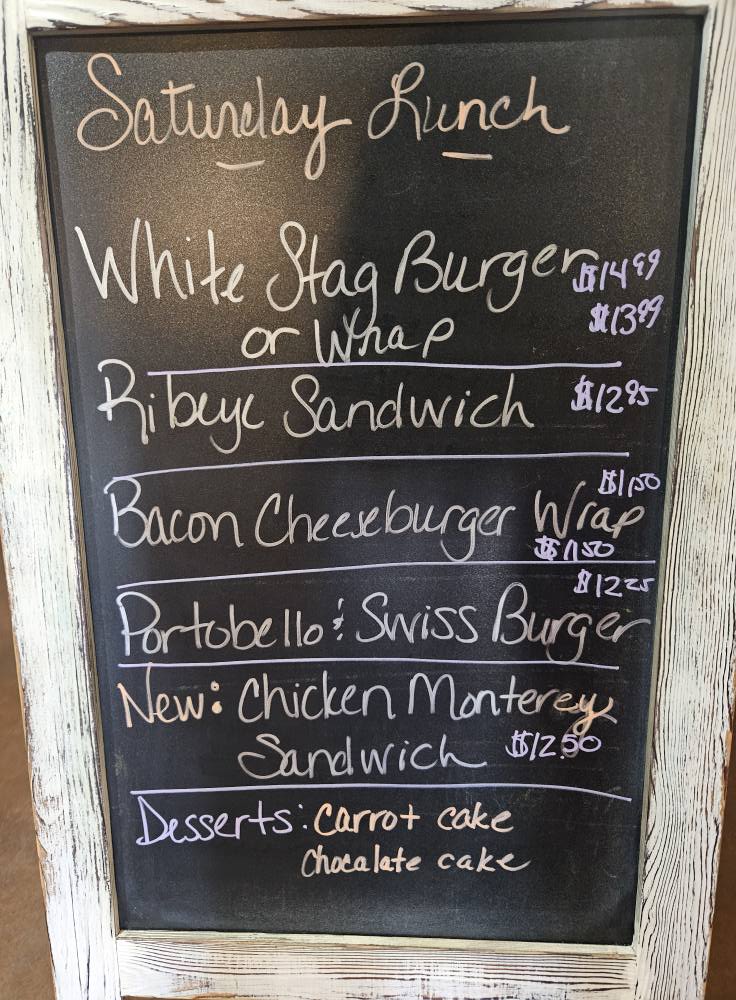 Saturday Lunch
White Stag Burger $14.99
or Wrap $13.99
Ribeye Sandwich $12.95
$11.50
Bacon Cheeseburger Wrap
$11.50
$12.25
Portobello & Swiss Burger
New: Chicken Monterey
Sandwich $12.50
Desserts: Carrot cake
Chocalate cake